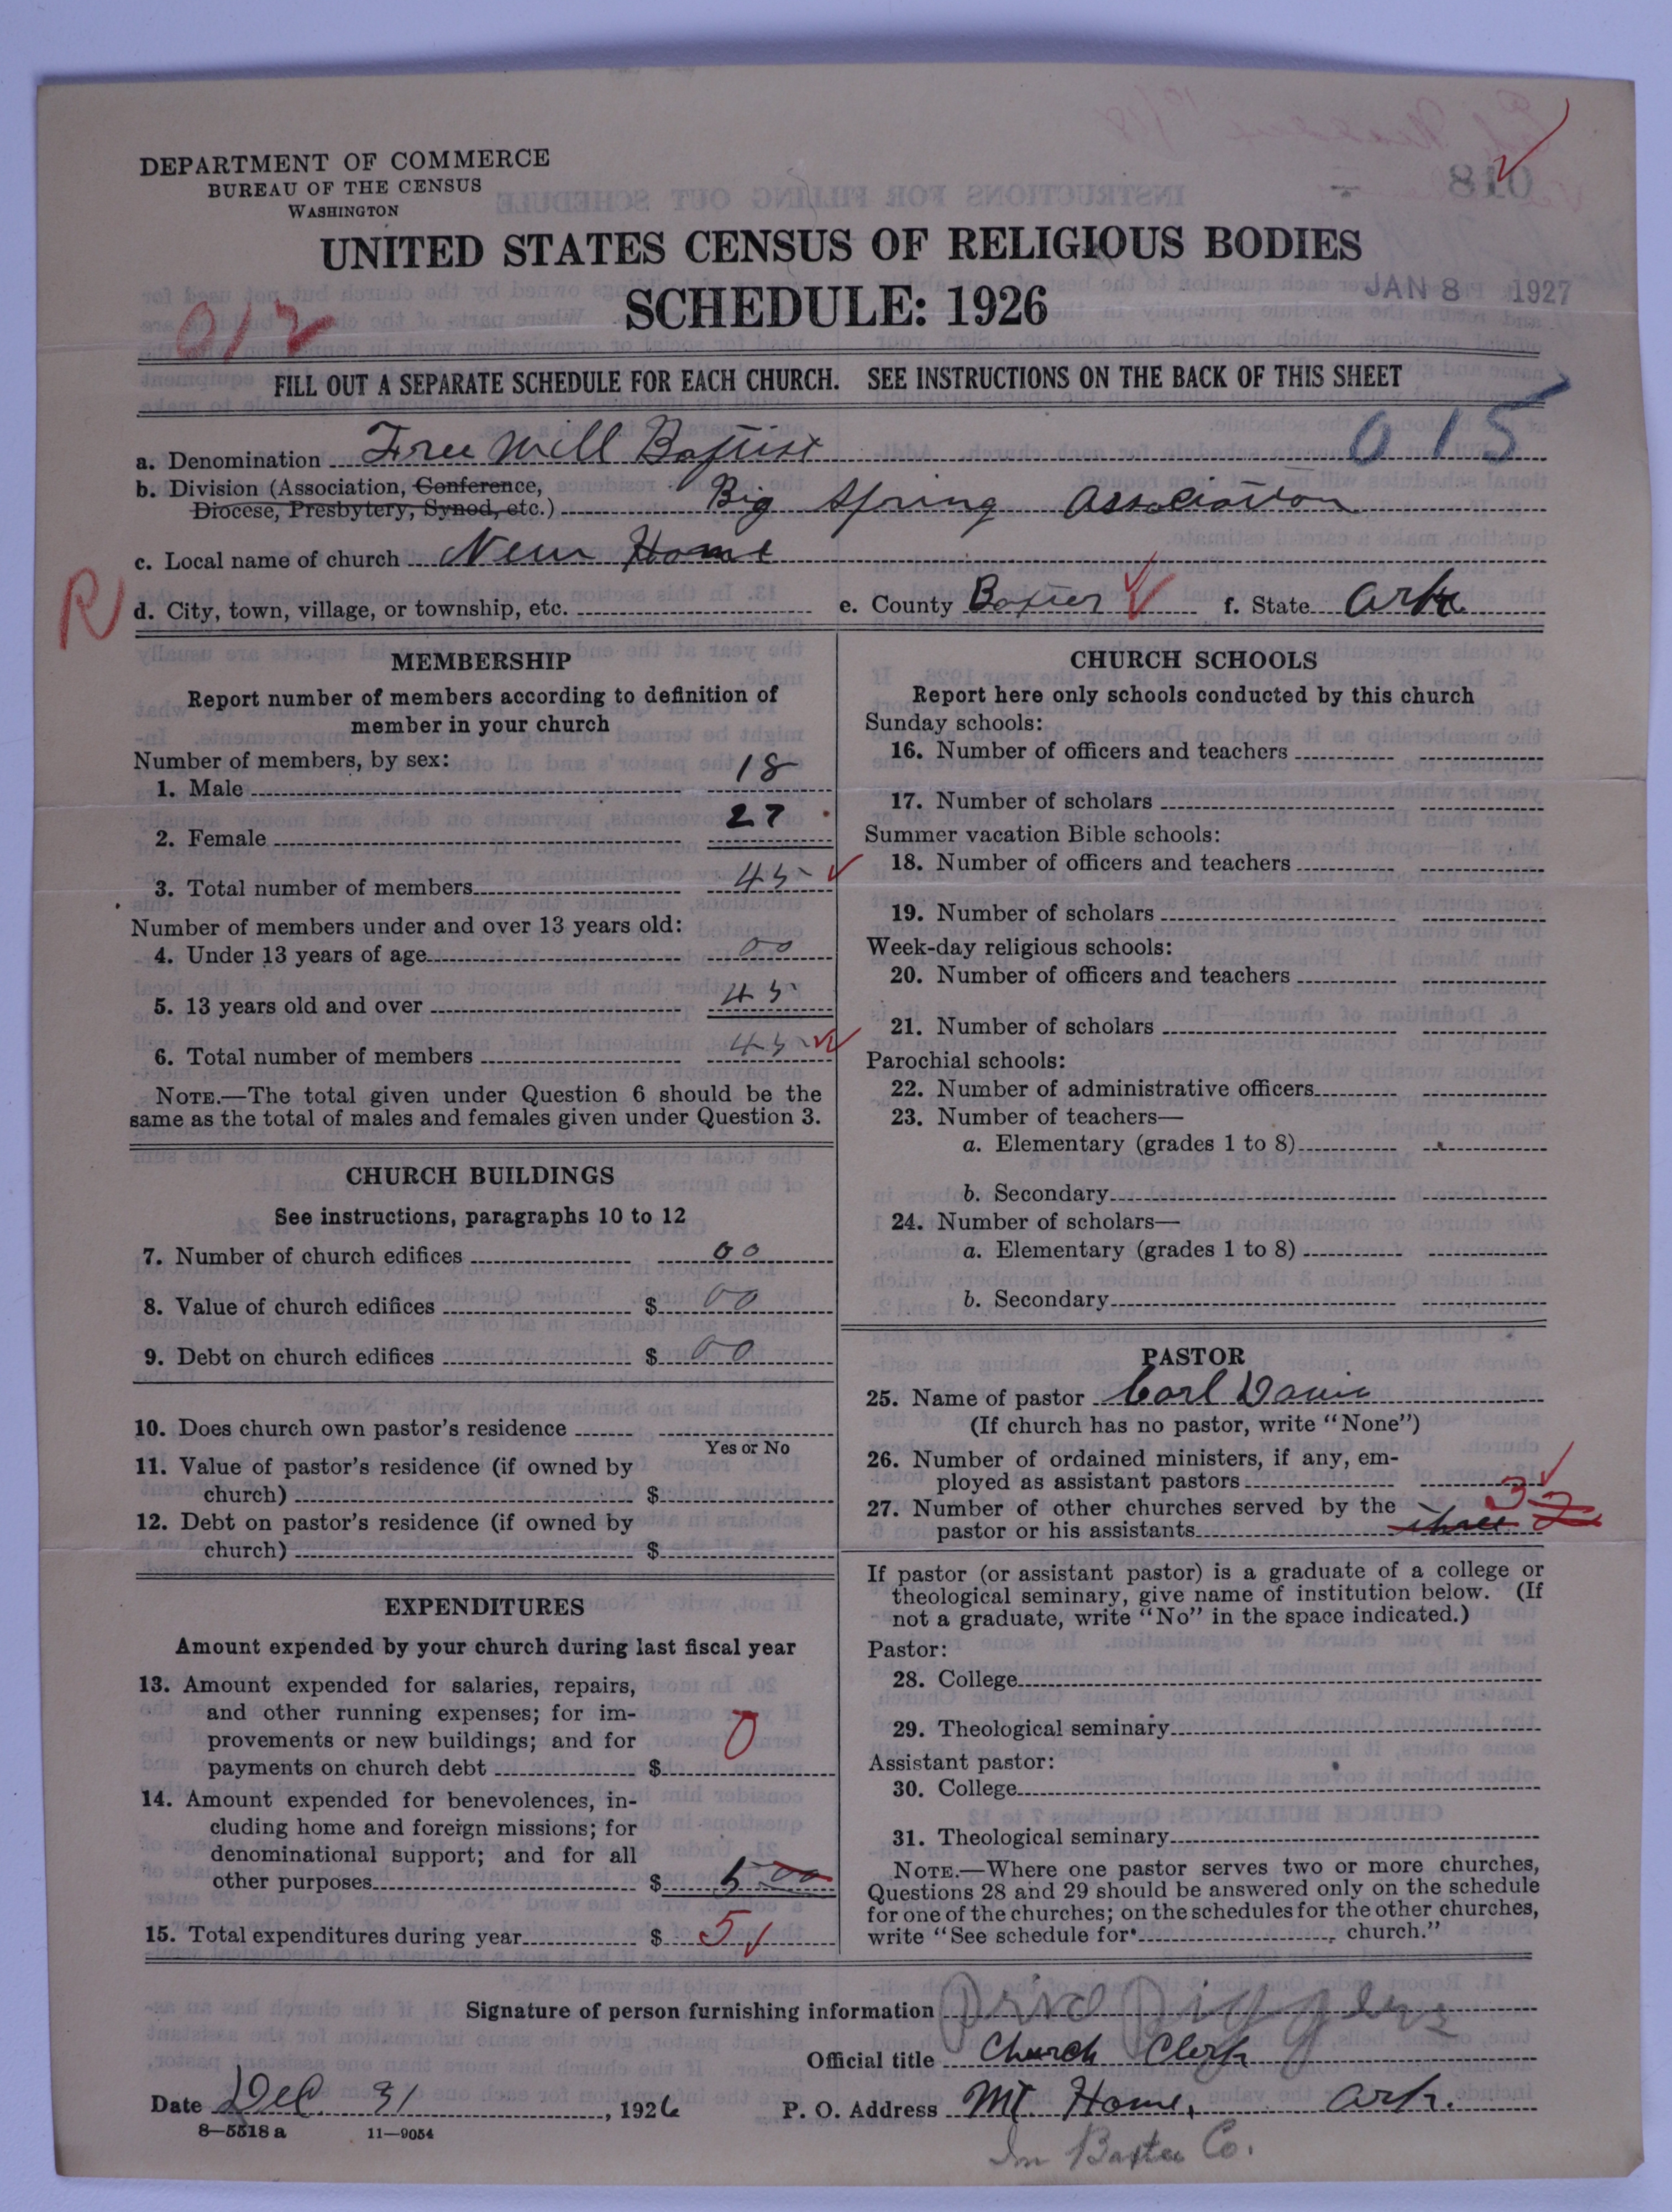 DEPARTMENT OF COMMERCE
BUREAU OF THE CENSUS
WASHINGTON
018
UNITED STATES CENSUS OF RELIGIOUS BODIES
SCHEDULE: 1926
JAN 8 1927
012
FILL OUT A SEPARATE SCHEDULE FOR EACH CHURCH. SEE INSTRUCTIONS ON THE BACK OF THIS SHEET
015
a. Denomination Free Will Baptist
b. Division (Association, Conference,
Diocese, Presbytery, Synod, etc.) Big Spring Association
c. Local name of church New Home
R
d. City, town, village, or township, etc. e. County Baxter f. State Ark.
MEMBERSHIP
Report number of members according to definition of
member in your church
Number of members, by sex:
1. Male 18
2. Female 27
3. Total number of members 45
Number of members under and over 13 years old:
4. Under 13 years of age 00
5. 13 years old and over 45
6. Total number of members 45
NOTE.—The total given under Question 6 should be the
same as the total of males and females given under Question 3.
CHURCH BUILDINGS
See instructions, paragraphs 10 to 12
7. Number of church edifices 00
8. Value of church edifices $ 00
9. Debt on church edifices $ 00
10. Does church own pastor's residence
Yes or No
11. Value of pastor's residence (if owned by
church) $
12. Debt on pastor's residence (if owned by
church) $
EXPENDITURES
Amount expended by your church during last fiscal year
13. Amount expended for salaries, repairs,
and other running expenses; for im-
provements or new buildings; and for
payments on church debt $ 0
14. Amount expended for benevolences, in-
cluding home and foreign missions; for
denominational support; and for all
other purposes $ 5 00
15. Total expenditures during year $ 5
CHURCH SCHOOLS
Report here only schools conducted by this church
Sunday schools:
16. Number of officers and teachers
17. Number of scholars
Summer vacation Bible schools:
18. Number of officers and teachers
19. Number of scholars
Week-day religious schools:
20. Number of officers and teachers
21. Number of scholars
Parochial schools:
22. Number of administrative officers
23. Number of teachers—
a. Elementary (grades 1 to 8)
b. Secondary
24. Number of scholars—
a. Elementary (grades 1 to 8)
b. Secondary
PASTOR
25. Name of pastor Carl Davis
(If church has no pastor, write "None")
26. Number of ordained ministers, if any, em-
ployed as assistant pastors
27. Number of other churches served by the 3
pastor or his assistants three 2
If pastor (or assistant pastor) is a graduate of a college or
theological seminary, give name of institution below. (If
not a graduate, write "No" in the space indicated.)
Pastor:
28. College
29. Theological seminary
Assistant pastor:
30. College
31. Theological seminary
NOTE.—Where one pastor serves two or more churches,
Questions 28 and 29 should be answered only on the schedule
for one of the churches; on the schedules for the other churches,
write "See schedule for church."
Signature of person furnishing information
Official title Church Clerk
Date Dec 31, 1926 P. O. Address Mt. Home, Ark.
8—5518 a 11—9054
In Baxter Co.